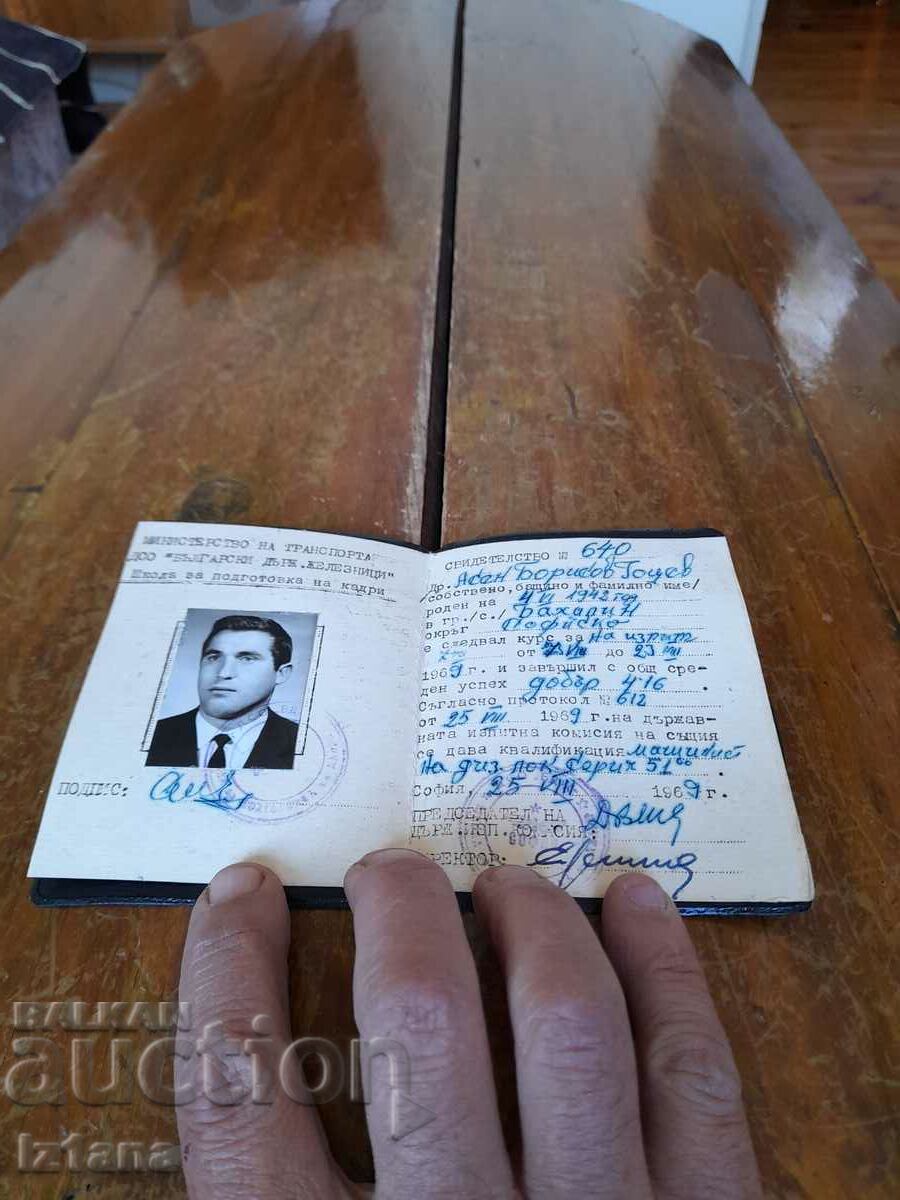 МИНИСТЕРСТВО НА ТРАНСПОРТА
ДСО "БЪЛГАРСКИ ДЪРЖ. ЖЕЛЕЗНИЦИ"
Школа за подготовка на кадри
ПОДПИС:
СВИДЕТЕЛСТВО № 640
Др. Асен Борисов Гоцев
/собствено, бащино и фамилно име/
роден на 4 VI 1942 год
в гр./с./ Бахалин
окръг Софийско
е следвал курс за на изпит
от VIII до 23 VIII
1969 г. и завърши с общ сре-
ден успех добър 4.16
Съгласно протокол № 612
от 25 VIII 1969 г. на държав-
ната изпитна комисия на същия
се дава квалификация машинист
на диз. лок. серия 51°°
София, 25 VIII 1969 г.
ПРЕДСЕДАТЕЛ НА
ДЪРЖ.
BALKAN
auction
iztana